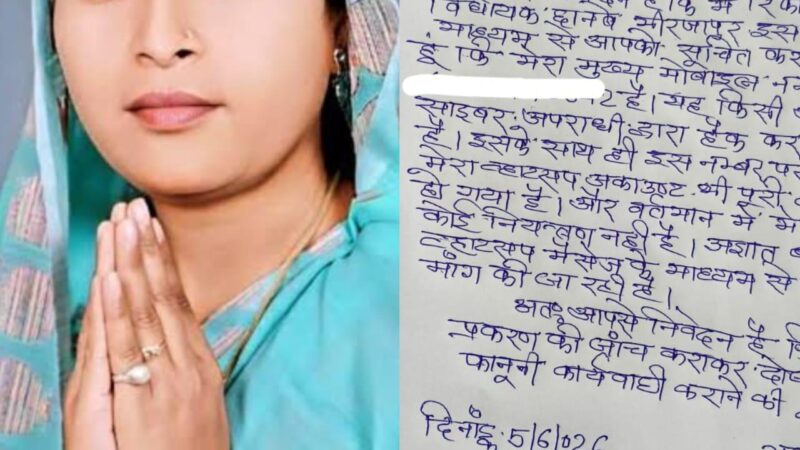 विधायक होने के मीरजापुर इस
माध्यम से आपको सूचित कर
हूं कि मेरा मुख्य मोबाइल नम्
है। यह किसी
साइबर अपराधी द्वारा हैक कर
है। इसके साथ ही इस नम्बर पर
मेरा व्हाटसप अकाउण्ट भी पूरी
हो गया है। और वर्तमान में मे
कोई नियन्त्रण नही है। अज्ञात
व्हाटसप मैसेज के माध्यम से
मांग की जा रही है।
अतः आपसे निवेदन है
प्रकरण की जाँच कराकर दोष
कानूनी कार्यवाही कराने की
दिनाँक 5/6/026